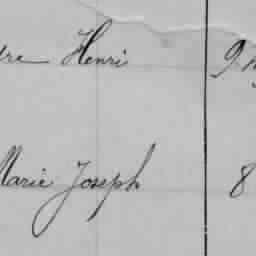 dre Henri 9
Marie Joseph 8